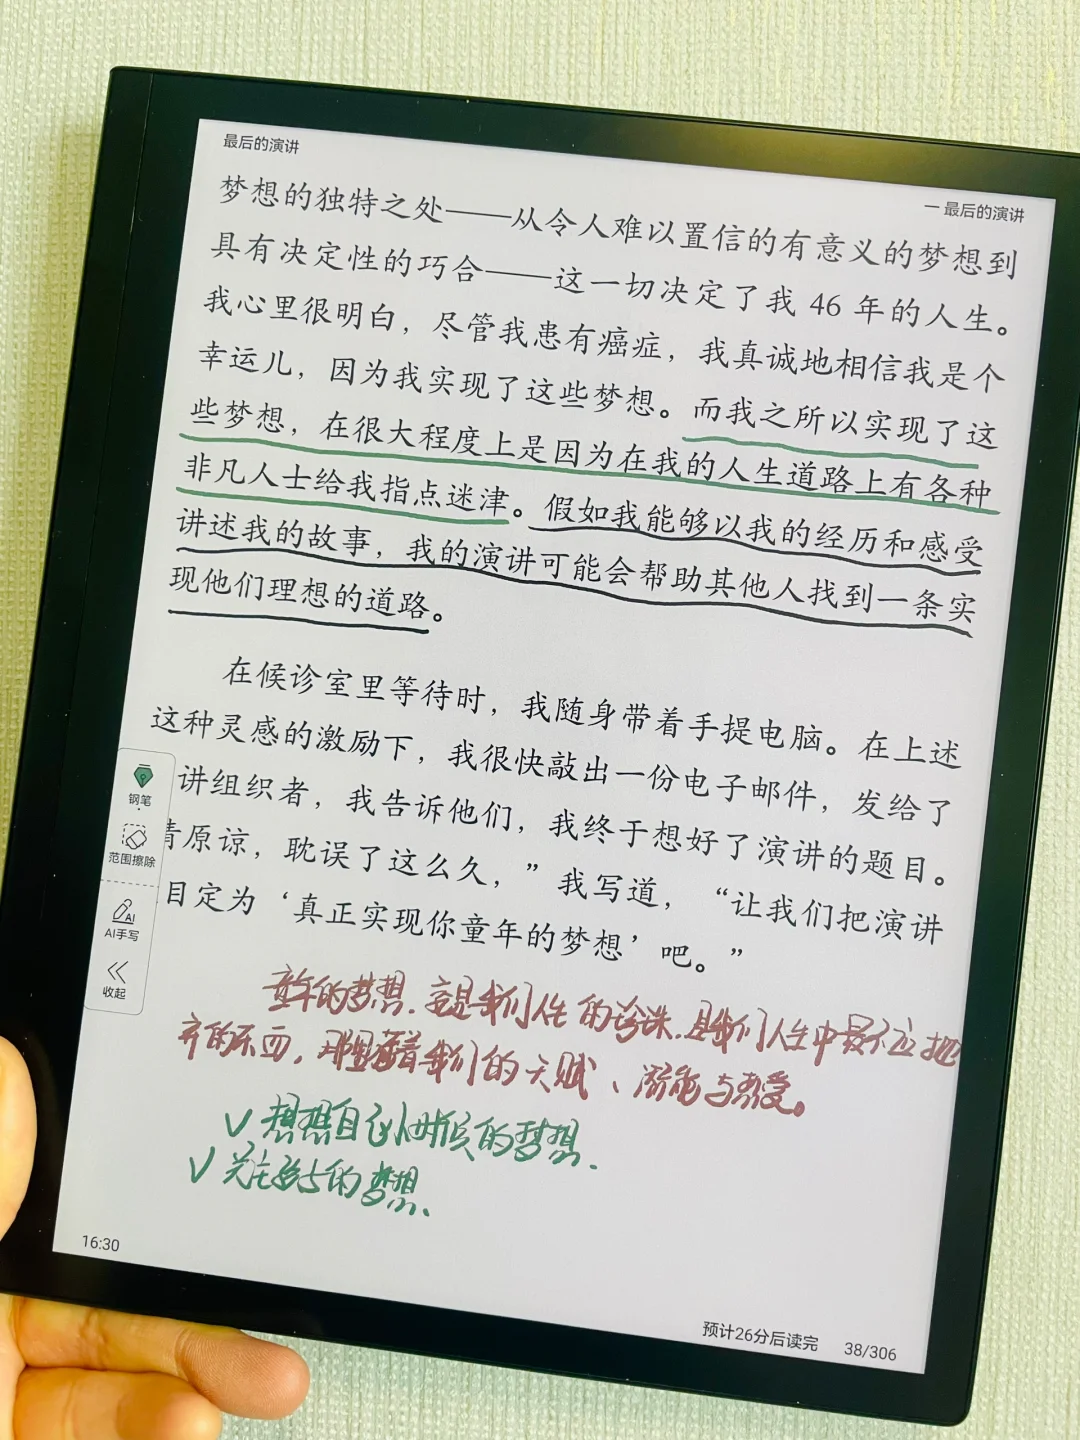 最后的演讲
一 最后的演讲
梦想的独特之处——从令人难以置信的有意义的梦想到
具有决定性的巧合——这一切决定了我 46 年的人生。
我心里很明白，尽管我患有癌症，我真诚地相信我是个
幸运儿，因为我实现了这些梦想。而我之所以实现了这
些梦想，在很大程度上是因为在我的人生道路上有各种
非凡人士给我指点迷津。假如我能够以我的经历和感受
讲述我的故事，我的演讲可能会帮助其他人找到一条实
现他们理想的道路。
在候诊室里等待时，我随身带着手提电脑。在上述
这种灵感的激励下，我很快敲出一份电子邮件，发给了
讲组织者，我告诉他们，我终于想好了演讲的题目。
原谅，耽误了这么久，”我写道，“让我们把演讲
目定为‘真正实现你童年的梦想’吧。”
钢笔
范围擦除
AI手写
收起
童年的梦想，这是我们人生的珍珠，是我们人生中最不应抛
弃的东西，那里藏着我们的天赋、潜能与热爱。
✓ 想想自己小时候的梦想.
✓ 关注孩子的梦想.
16:30
预计26分后读完 38/306